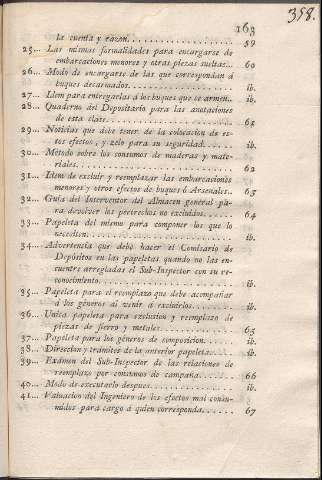 358.
163
la cuenta y razon. . . . . . . . . . . . . . . . . 59
25... Las mismas formalidades para encargarse de
embarcaciones menores y otras piezas sueltas... 60
26... Modo de encargarse de las que correspondan á
buques desarmados. . . . . . . . . . . . . . . . ib.
27... Idem para entregarlas á los buques que se armen.. ib.
28... Quaderno del Depositario para las anotaciones
de esta clase. . . . . . . . . . . . . . . . . 61
29... Noticias que debe tener de la colocacion de es-
tos efectos, y zelo para su seguridad. . . . . . ib.
30... Método sobre los consumos de maderas y mate-
riales. . . . . . . . . . . . . . . . . . . . . 62
31... Idem de excluir y reemplazar las embarcaciones
menores y otros efectos de buques ó Arsenales.. 63
32... Guia del Interventor del Almacen general pa-
ra devolver los pertrechos no excluidos. . . . . . 64
33... Papeleta del mismo para componer los que lo
necesiten. . . . . . . . . . . . . . . . . . . . ib.
34... Advertencia que debe hacer el Comisario de
Depósitos en las papeletas quando no las en-
cuentre arregladas el Sub-Inspector con su re-
conocimiento. . . . . . . . . . . . . . . . . . ib.
35... Papeleta para el reemplazo que debe acompañar
á los géneros al venir á excluirlos. . . . . . . ib.
36... Unica papeleta para exclusion y reemplazo de
piezas de fierro y metales. . . . . . . . . . . 65
37... Papeleta para los géneros de composicion. . . . . ib.
38... Direccion y trámites de la anterior papeleta. . . . ib.
39... Exâmen del Sub-Inspector de las relaciones de
reemplazo por consumos de campaña. . . . . . . 66
40... Modo de executarlo despues. . . . . . . . . . . ib.
41... Valuacion del Ingeniero de los efectos mal consu-
midos para cargo á quien corresponda. . . . . . 67